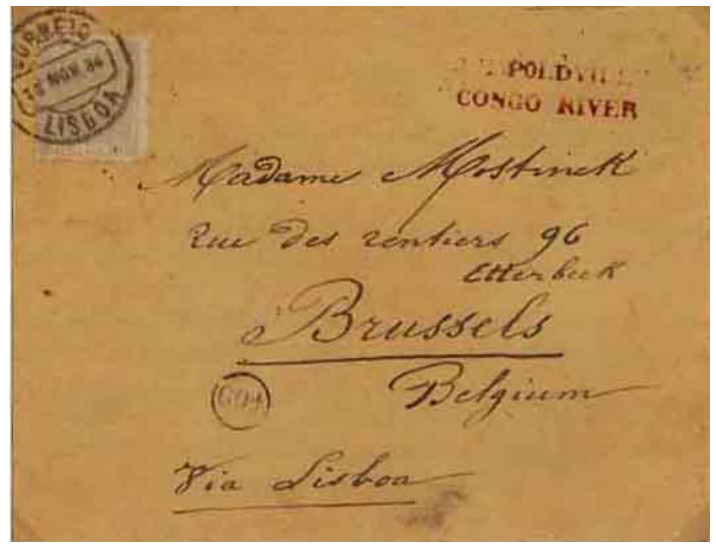 CORREIO
NOV 84
LISBOA
POLDVILLE
CONGO RIVER
Madame Mostinck
Rue des rentiers 96
Etterbeek
Brussels
Belgium
Via Lisboa